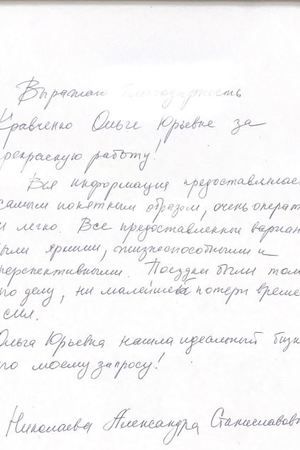 Выражаю благодарность
Кравченко Ольге Юрьевне за
прекрасную работу!
Вся информация предоставляе
самым понятным образом, очень операт
и легко. Все предоставленные вариан
были яркими, жизнеспособными и
перспективными. Поездки были толь
по делу, ни малейшей потери време
сил.
Ольга Юрьевна нашла идеальный бизн
по моему запросу!
Николаева Александра Станиславовн